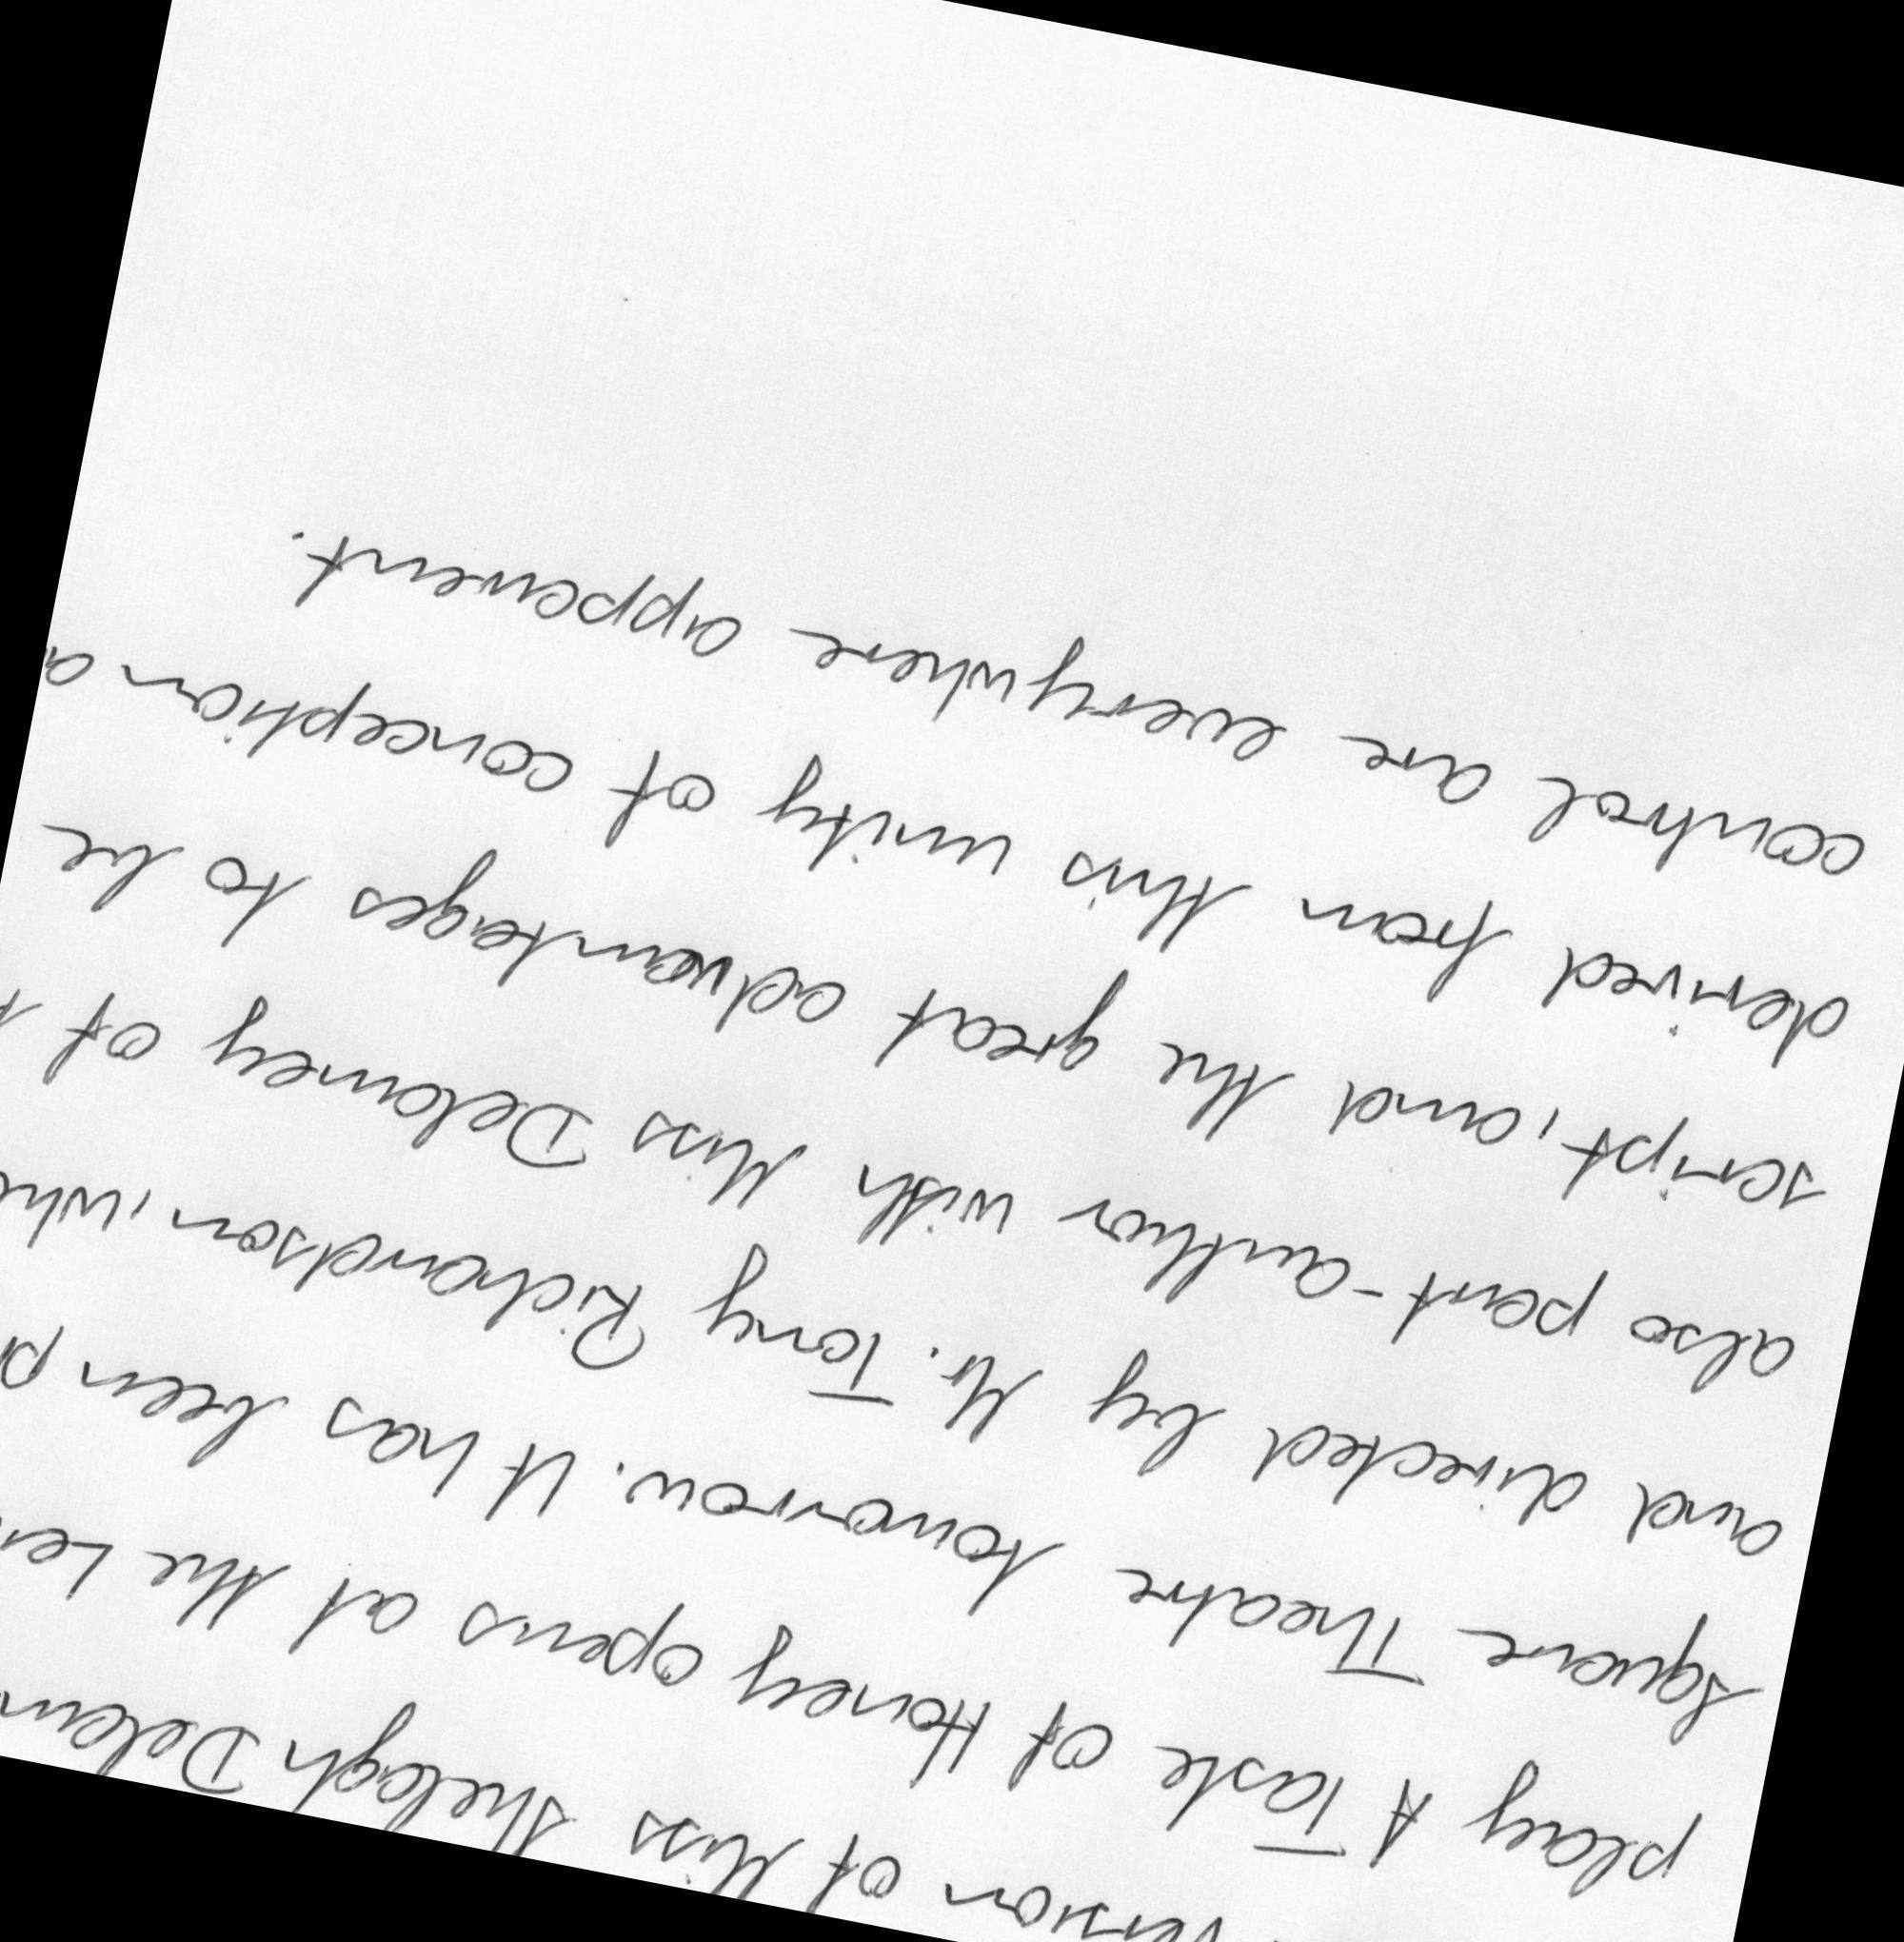 version of Miss Shelagh
play A Taste of Honey opens at the
Square Theatre tomorrow. It has been
and directed by Mr. Tony Richardson, who
also part-author with Miss Delaney of
script, and the great advantages to be
derived from this unity of conception
control are everywhere apparent.